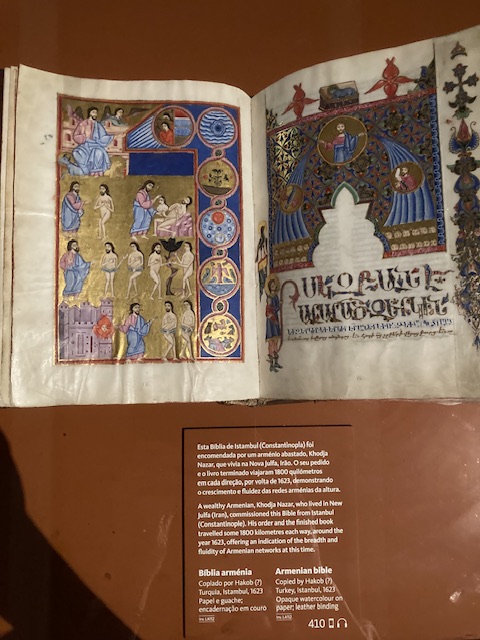 Esta Bíblia de Istambul (Constantinopla) foi
encomendada por um arménio abastado, Khodja
Nazar, que vivia na Nova Julfa, Irão. O seu pedido
e o livro terminado viajaram 1800 quilómetros
em cada direção, por volta de 1623, demonstrando
o crescimento e fluidez das redes arménias da altura.
A wealthy Armenian, Khodja Nazar, who lived in New
Julfa (Iran), commissioned this Bible from Istanbul
(Constantinople). His order and the finished book
travelled some 1800 kilometres each way, around the
year 1623, offering an indication of the breadth and
fluidity of Armenian networks at this time.
Bíblia arménia
Copiado por Hakob (?)
Turquia, Istambul, 1623
Papel e guache;
encadernação em couro
Inv. LA152
Armenian bible
Copied by Hakob (?)
Turkey, Istanbul, 1623
Opaque watercolour on
paper; leather binding
Inv. LA152
410